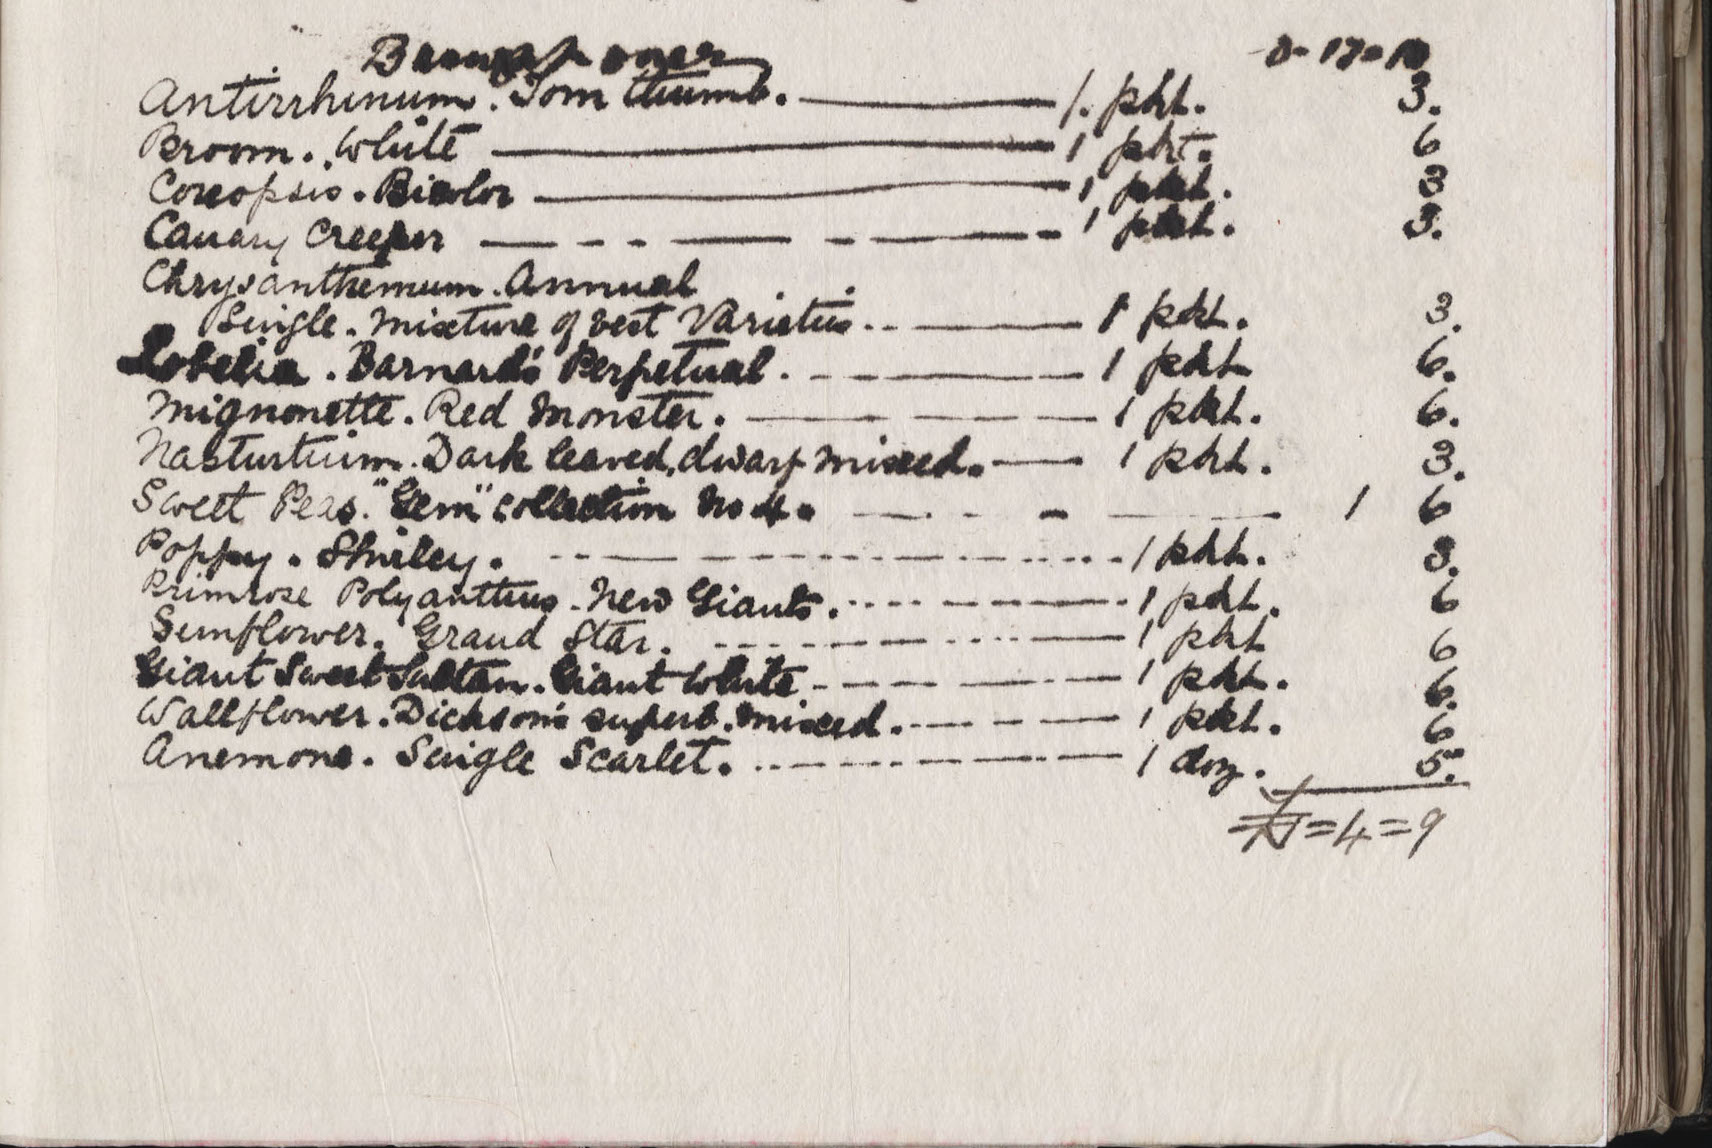 Brought over 0-17-10
Antirrhinum. Tom thumb. 1. pkt. 3.
Broom. White 1 pkt. 6
Coreopsis. Bicolor 1 pkt. 3
Canary Creeper 1 pkt. 3.
Chrysanthemum. Annual
Single. Mixture of best Varieties 1 pkt. 3.
Lobelia. Barnard's Perpetual. 1 pkt 6.
Mignonette. Red Monster. 1 pkt. 6.
Nasturtium. Dark leaved, dwarf mixed. 1 pkt. 3.
Sweet Peas. "Gem" Collection No 4. 1 6
Poppy. Shirley. 1 pkt. 3.
Primrose Polyanthus. New Giants. 1 pkt. 6
Sunflower. Grand Star. 1 pkt 6
Giant Sweet Sultan. Giant White 1 pkt. 6.
Wallflower. Dickson's superb. mixed. 1 pkt. 6
Anemone. Single Scarlet. 1 doz. 5.
=4=9